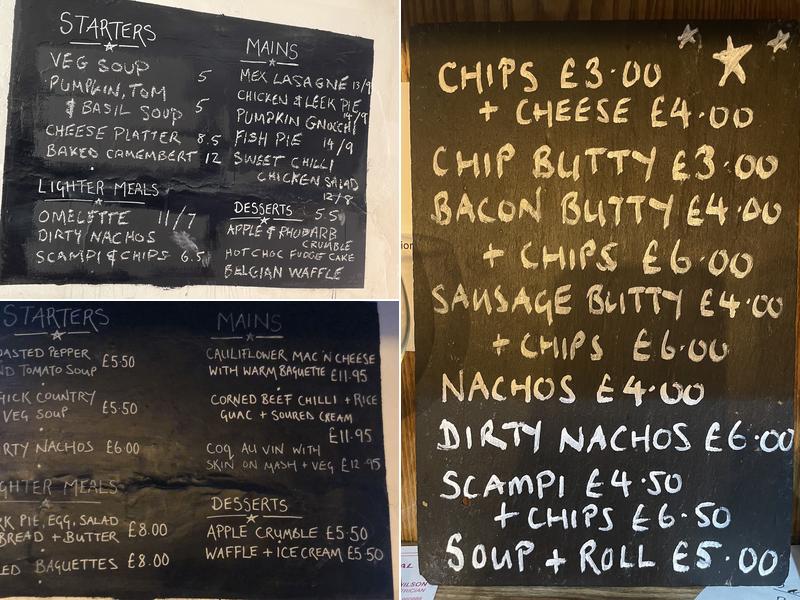 STARTERS
VEG SOUP 5
PUMPKIN, TOM
& BASIL SOUP 5
CHEESE PLATTER 8.5
BAKED CAMEMBERT 12
LIGHTER MEALS
OMELETTE 11/7
DIRTY NACHOS
SCAMPI & CHIPS 6.5
MAINS
MEX LASAGNE 13/9
CHICKEN & LEEK PIE
14/9
PUMPKIN GNOCCHI
FISH PIE 14/9
SWEET CHILLI
CHICKEN SALAD
12/8
DESSERTS 5.5
APPLE & RHUBARB
CRUMBLE
HOT CHOC FUDGE CAKE
BELGIAN WAFFLE
STARTERS
OASTED PEPPER
ND TOMATO SOUP £5.50
HICK COUNTRY
VEG SOUP £5.50
IRTY NACHOS £6.00
GHTER MEALS
RK PIE, EGG, SALAD
BREAD + BUTTER £8.00
LED BAGUETTES £8.00
MAINS
CAULIFLOWER MAC 'N CHEESE
WITH WARM BAGUETTE £11.95
CORNED BEEF CHILLI + RICE
GUAC + SOURED CREAM
£11.95
COQ AU VIN WITH
SKIN ON MASH + VEG £12.95
DESSERTS
APPLE CRUMBLE £5.50
WAFFLE + ICE CREAM £5.50
CHIPS £3.00
+ CHEESE £4.00
CHIP BUTTY £3.00
BACON BUTTY £4.00
+ CHIPS £6.00
SAUSAGE BUTTY £4.00
+ CHIPS £6.00
NACHOS £4.00
DIRTY NACHOS £6.00
SCAMPI £4.50
+ CHIPS £6.50
SOUP + ROLL £5.00
WILSON